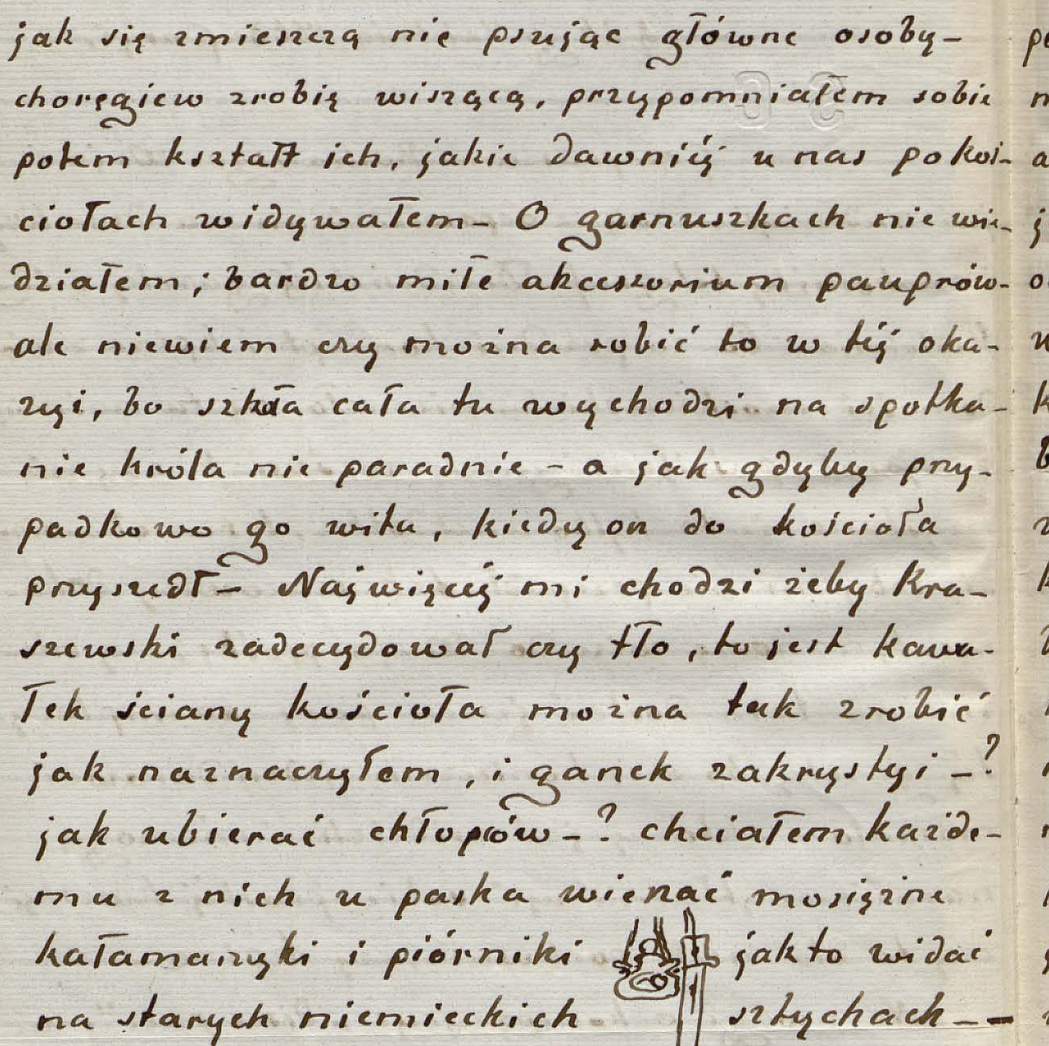 jak się zmieszczą nie psując główne osoby –
choręgiew zrobię wiszącą, przypomniałem sobie
potem kształt ich, jakie dawniéj u nas po koś-
ciołach widywałem – O garnuszkach nie wie-
działem; bardzo miłe akcessorium pauprów –
ale niewiem czy można robić to w téj oka-
zyi, bo szkoła cała tu wychodzi na spotka-
nie króla nie paradnie – a jak gdyby przy-
padkowo go wita, kiedy on do kościoła
przyszedł – Najwięcéj mi chodzi żeby Kra-
szewski zadecydował czy tło, to jest kawa-
łek ściany kościoła można tak zrobić
jak naznaczyłem, i ganek zakrystyi – ?
jak ubierać chłopców – ? chciałem każde-
mu z nich u paska wieszać mosiężne
kałamarzyki i piórniki jak to widać
na starych niemieckich sztychach –